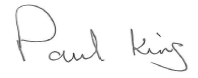 Paul King